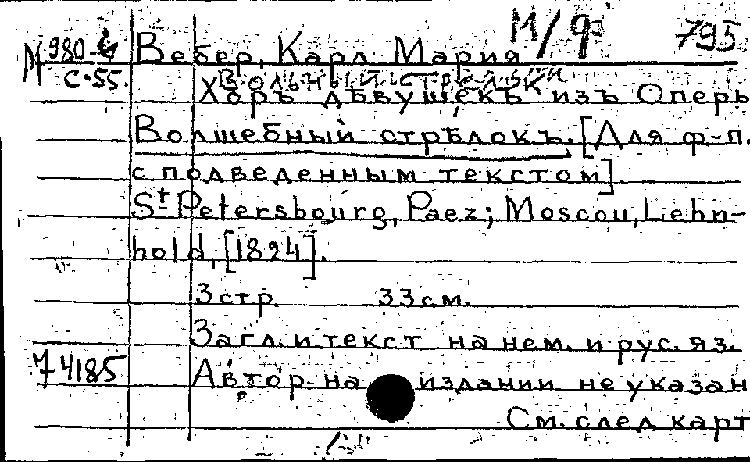 М/ф 795
М 980-4 Вебер, Карл Мария
с.55. Вольный стрелок
Хоръ дѣвушекъ изъ Оперы
Волшебный стрѣлокъ. [Для ф-п.
с подведенным текстом]
St Petersbourg, Paez; Moscou, Lehn-
hold, [1824].
3 стр. 33 см.
Загл. и текст на нем. и рус. яз.
74185 Автор на издании не указан
См. след карт